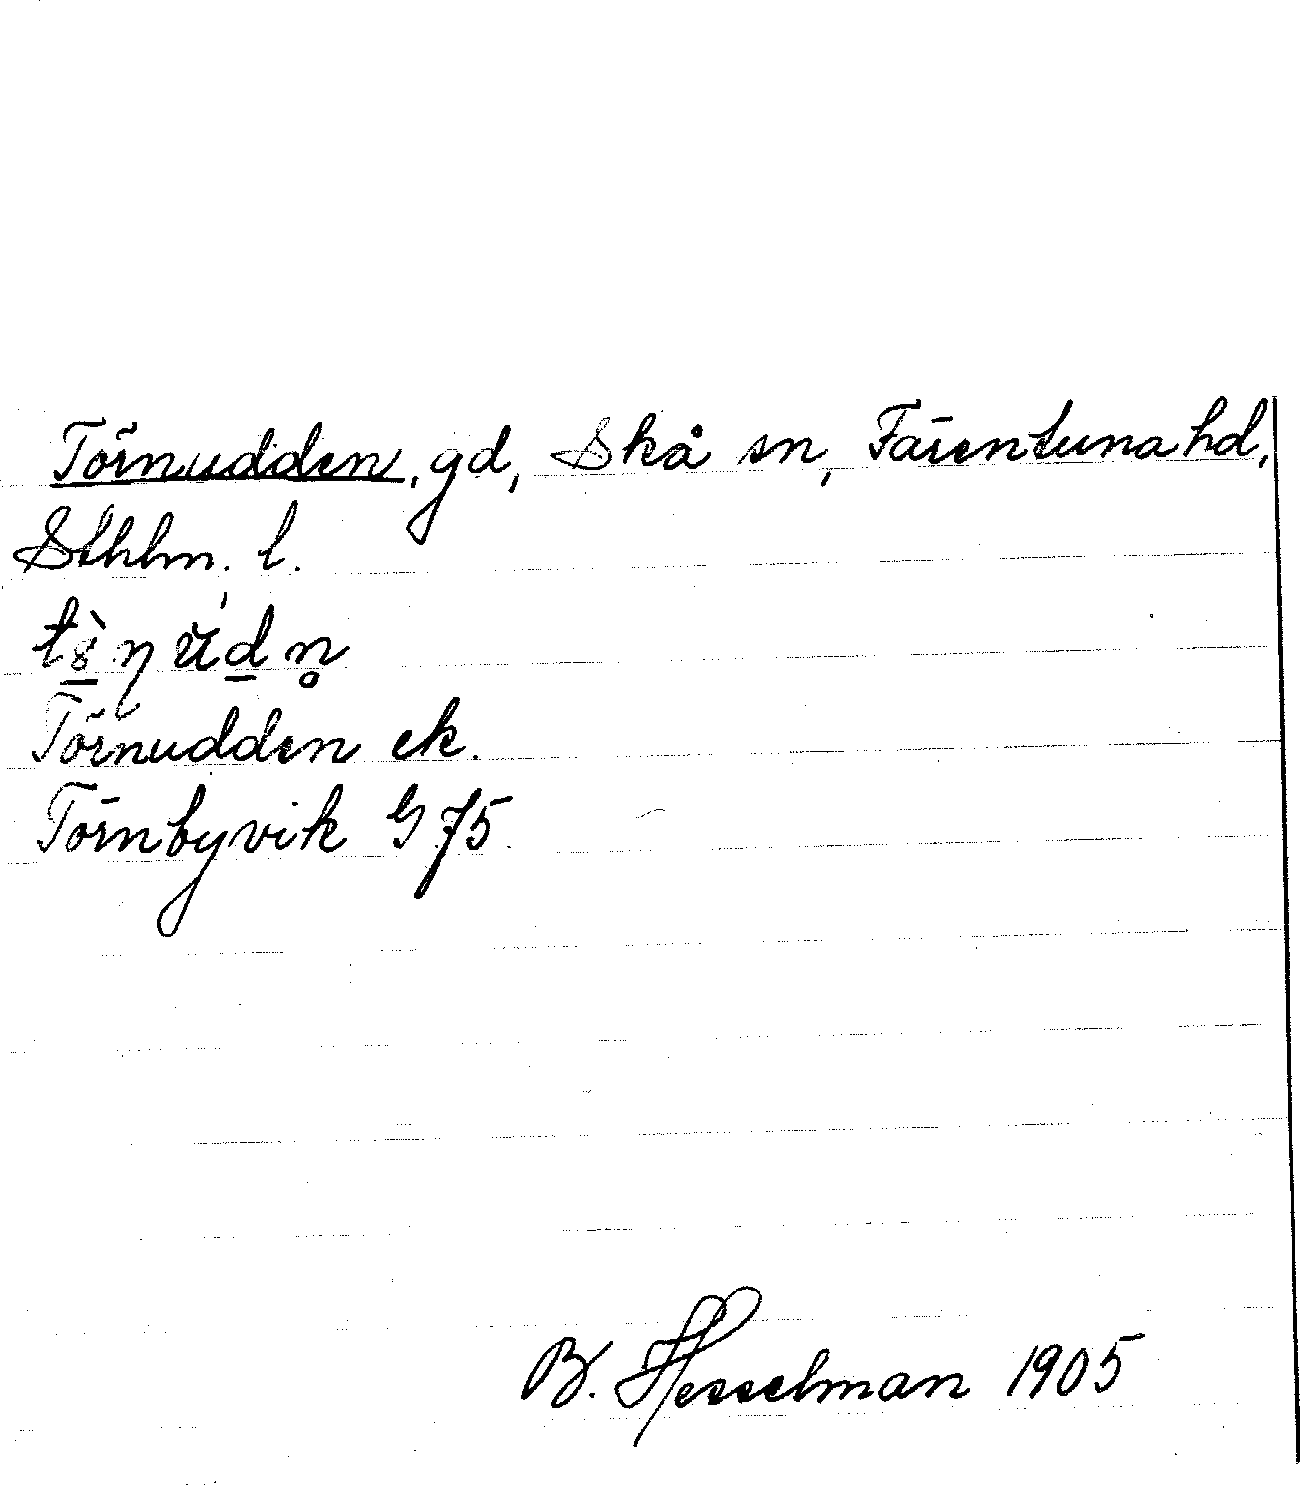 Törnudden, gd, Skå sn, Färentuna hd,
Sthlm. l.
Törnudden ek.
Törnbyvik G 75
B. Hesselman 1905